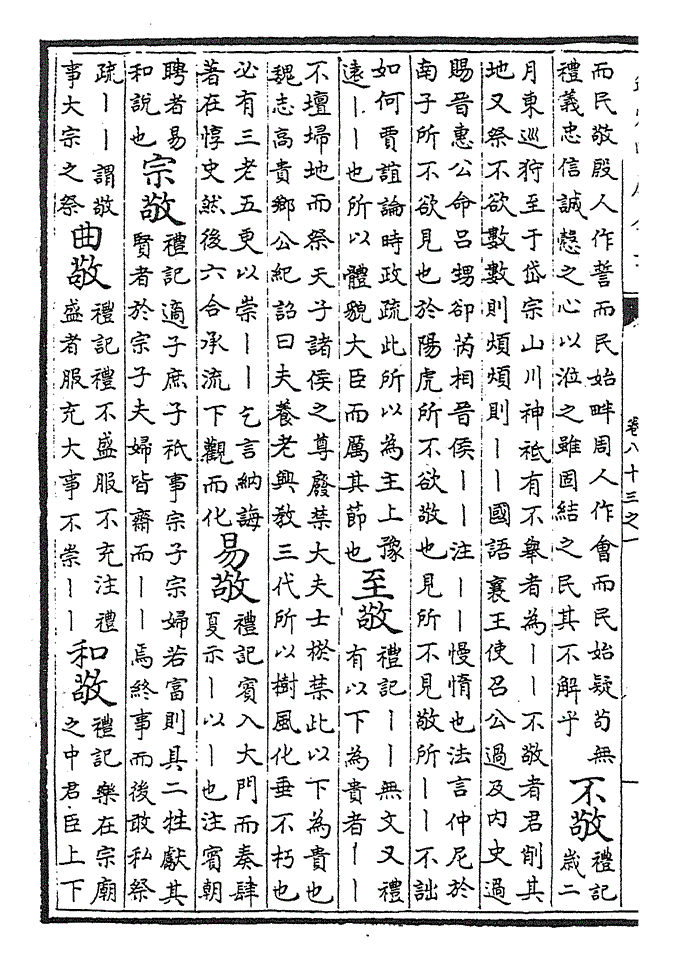 卷八十三之一
而民敬殷人作誓而民始畔周人作會而民始疑苟無
禮義忠信誠慤之心以涖之雖固結之民其不解乎
不敬
禮記
歲二
月東巡狩至于岱宗山川神祇有不舉者為丨丨不敬者君削其
地又祭不欲數數則煩煩則丨丨國語襄王使召公過及內史過
賜晉惠公命呂甥郤芮相晉侯丨丨注丨丨慢惰也法言仲尼於
南子所不欲見也於陽虎所不欲敬也見所不見敬所丨丨不詘
如何賈誼論時政疏此所以為主上豫
遠丨丨也所以體貌大臣而厲其節也
至敬
禮記丨丨無文又禮
有以下為貴者丨丨
不壇埽地而祭天子諸侯之尊廢禁大夫士棜禁此以下為貴也
魏志高貴鄉公紀詔曰夫養老興教三代所以樹風化垂不朽也
必有三老五更以崇丨丨乞言納誨
著在惇史然後六合承流下觀而化
易敬
禮記賓入大門而奏肆
夏示丨以丨也注賓朝
聘者易
和說也
宗敬
禮記適子庶子祇事宗子宗婦若富則具二牲獻其
賢者於宗子夫婦皆齋而丨丨焉終事而後敢私祭
疏丨丨謂敬
事大宗之祭
曲敬
禮記禮不盛服不充注禮
盛者服充大事不崇丨丨
和敬
禮記樂在宗廟
之中君臣上下